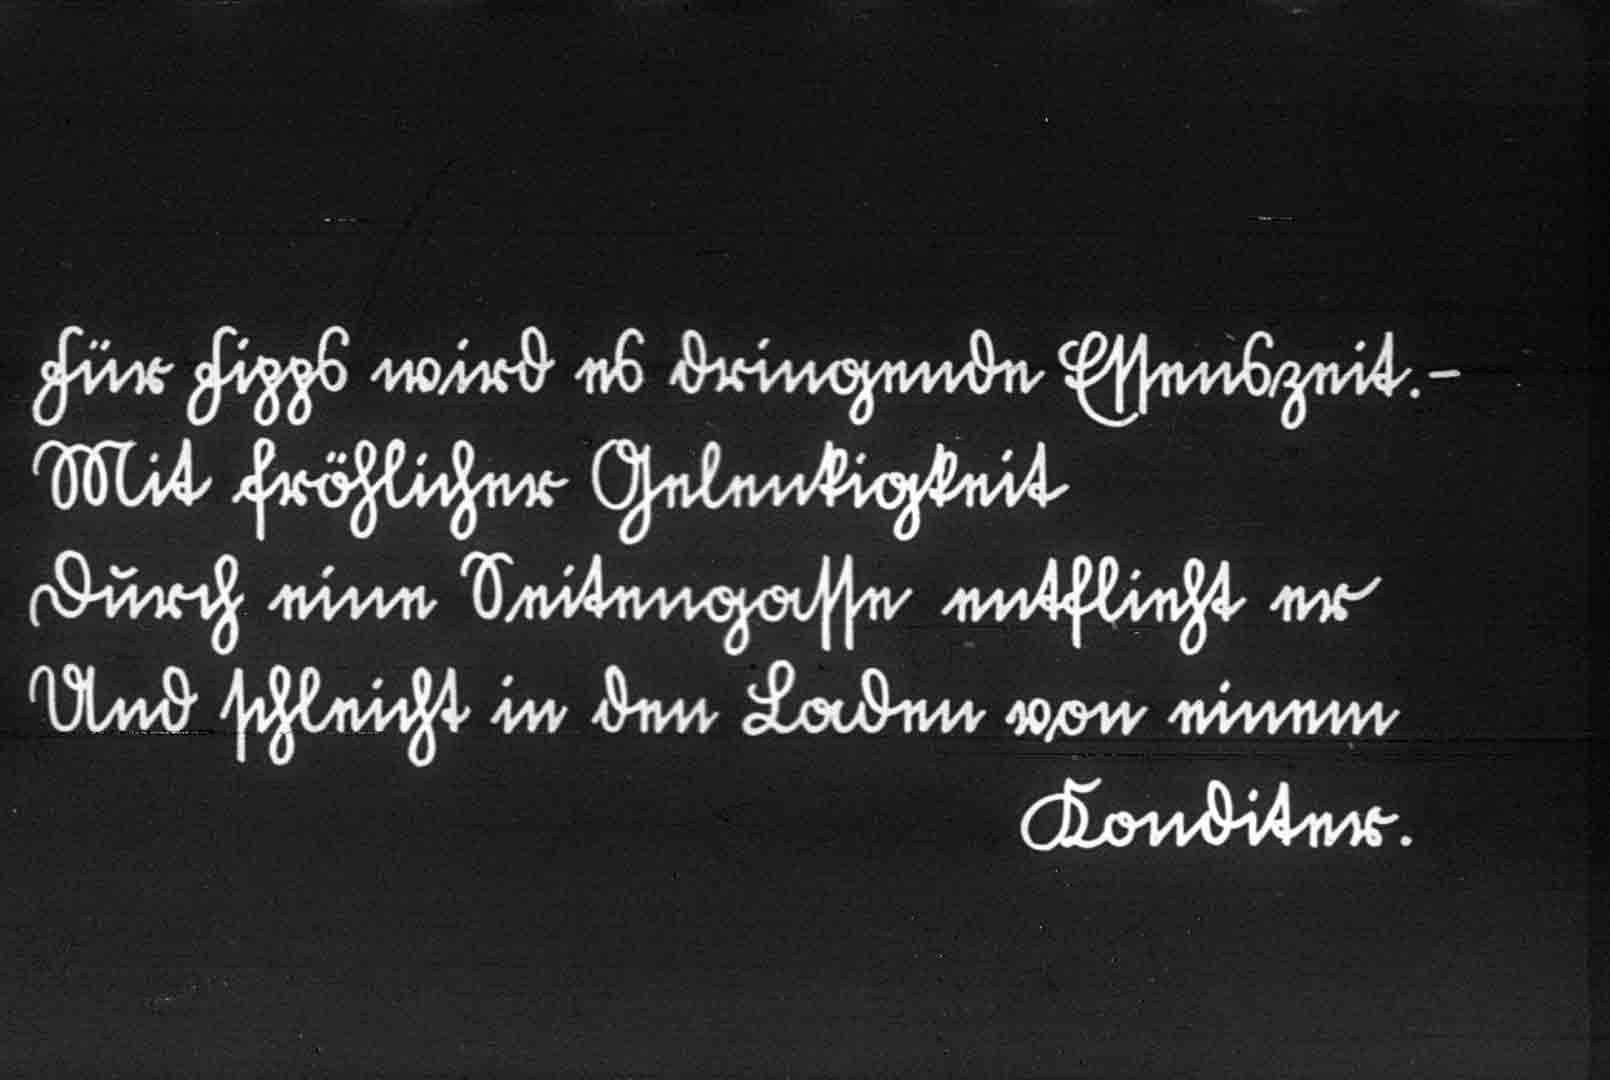 Für Fipps wird es dringende Essenszeit.-
Mit fröhlicher Gelenkigkeit
Durch eine Seitengasse entflieht er
Und schleicht in den Laden von einem
Konditer.